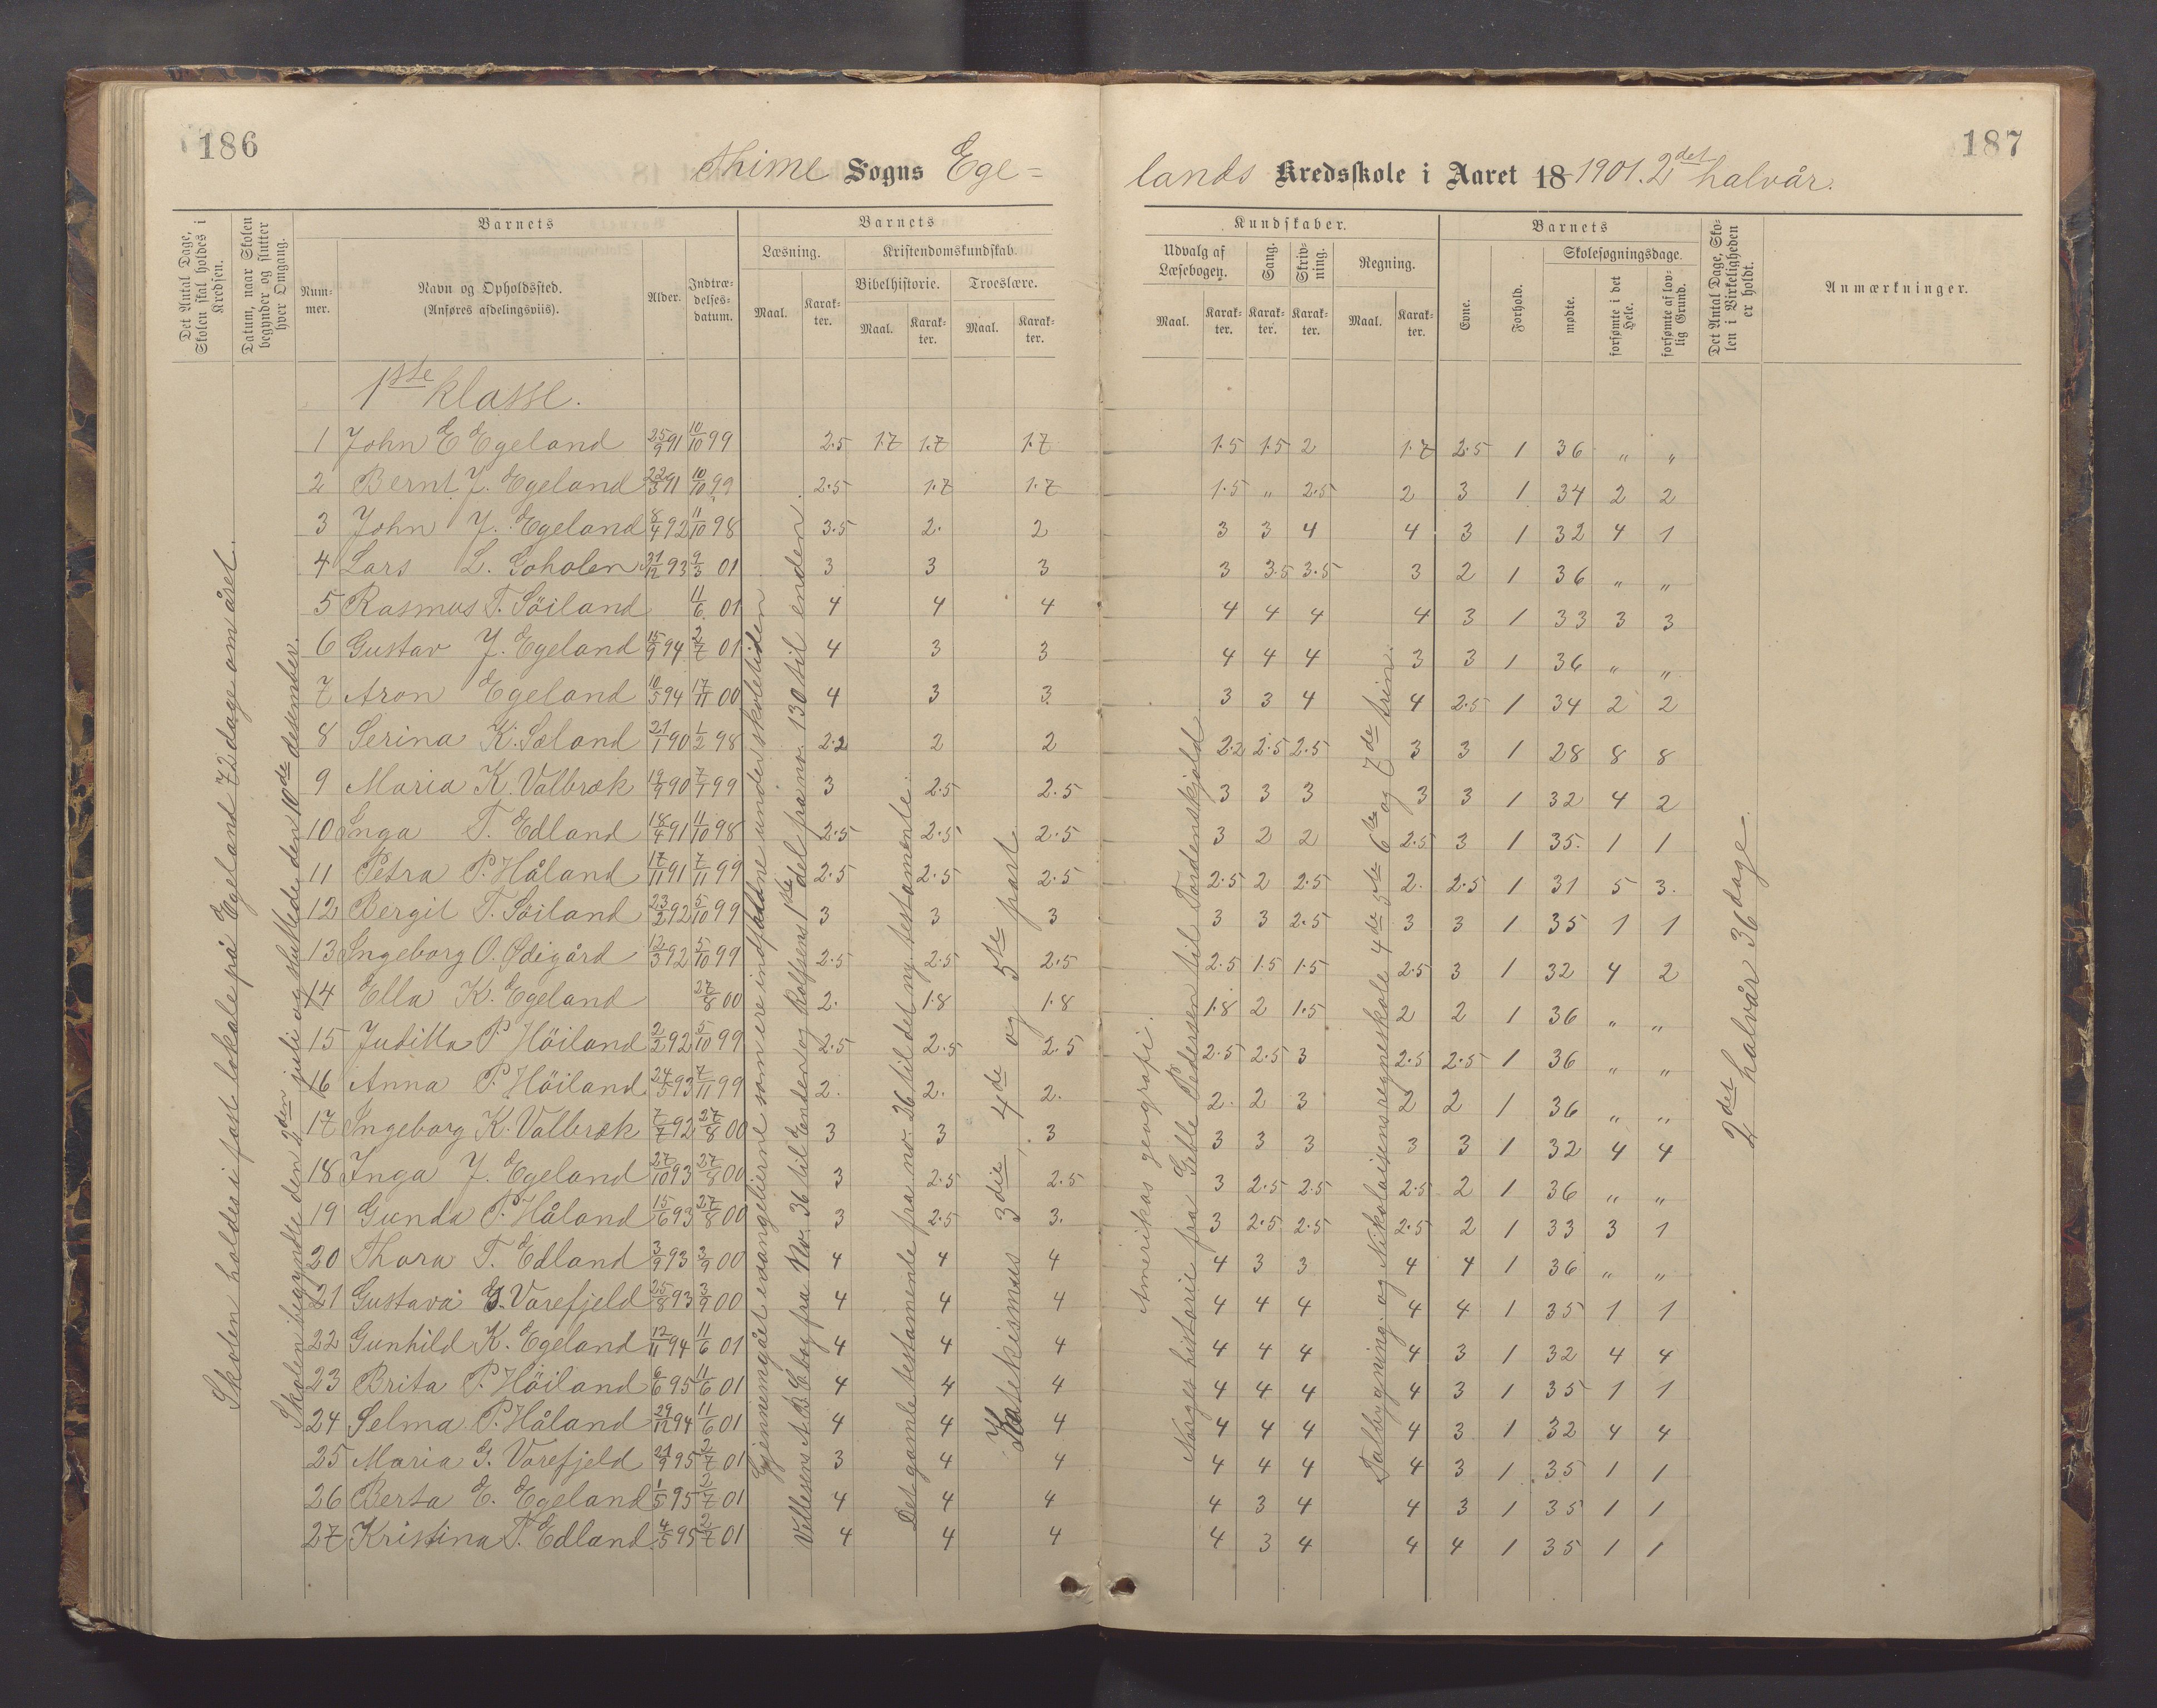 186
Thime Sogns Ege=
Det Antal Dage, Skolen skal holdes i Kredsen.
Datum, naar Skolen begynder og slutter hver Omgang.
Barnets
Num-mer.
Navn og Opholdssted.
(Anføres afdelingsviis).
Alder.
Indtræ-delses-datum.
Barnets
Læsning.
Maal.
Karak-ter.
Kristendomskundskab.
Bibelhistorie.
Maal.
Karak-ter.
Troeslære.
Maal.
Karak-ter.
1ste klasse.
1 John E Egeland 25/9 91 10/10 99 2.5 1.7 1.7 1.7
2 Bernt J. Egeland 22/3 91 10/10 99 2.5 1.7 1.7
3 John J. Egeland 8/4 92 11/10 98 3.5 2. 2
4 Lars L. Goholen 31/12 93 9/3 01 3 3 3
5 Rasmus T. Söiland 11/6 01 4 4 4
6 Gustav J. Egeland 15/9 94 2/7 01 4 3 3
7 Aron Egeland 10/5 94 17/11 00 4 3 3
8 Serina K. Sæland 21/1 90 1/2 98 2.2 2 2
9 Maria K. Valbræk 19/9 90 7/1 99 3 2.5 2.5
10 Inga T. Edland 18/4 91 11/10 98 2.5 2.5 2.5
11 Petra P. Håland 17/11 91 7/11 99 2.5 2.5 2.5
12 Bergit T. Söiland 23/2 92 5/10 99 3 3 3
13 Ingeborg O. Ødigård 12/3 92 5/10 99 2.5 2.5 2.5
14 Ella K. Egeland 27/8 00 2. 1.8 1.8
15 Juditta P Höiland 2/2 92 5/10 99 2.5 2.5 2.5
16 Anna P. Höiland 24/5 93 7/11 99 2. 2. 2.
17 Ingeborg K. Valbræk 7/7 92 27/8 00 3 3 3
18 Inga J. Egeland 27/10 93 27/8 00 3 2.5 2.5
19 Gunda P. Håland 15/6 93 27/8 00 3 2.5 3.
20 Thora T. Edland 3/9 93 3/9 00 4 4 4
21 Gustava G. Varefjeld 25/8 93 3/9 00 4 4 4
22 Gunhild K. Egeland 12/11 94 11/6 01 4 4 4
23 Brita P. Höiland 6/6 95 11/6 01 4 4 4
24 Selma P. Håland 29/12 94 11/6 01 4 4 4
25 Maria G. Varefjeld 21/9 95 2/7 01 3 4 4
26 Berta E. Egeland 1/5 95 2/7 01 4 4 4
27 Kristina T. Edland 4/5 95 2/7 01 4 4 4
Skolen holdes i fast lokale på Egeland 72 dage om året.
Skolen begyndte den 2den juli og sluttede den 10de desember.
Gjennemgået evangelierne som ere indfaldne under skoletiden
Villesens A.B.C bog fra No. 36 til Enden og Rolfsens 1ste del fra no. 130 til enden.
Det gamle testamente fra no. 26 til det ny testamente.
Katekismus 3die, 4de og 5te part.
187
lands Kredsskole i Aaret 18 1901. 2det halvår.
Kundskaber.
Udvalg af Læsebogen.
Maal.
Karak-ter.
Sang.
Karak-ter.
Skriv-ning.
Karak-ter.
Regning.
Maal.
Karak-ter.
Barnets
Evne.
Forhold.
Skolesøgningsdage.
mødte.
forsømte i det Hele.
forsømte af lov-lig Grund.
Det Antal Dage, Sko-len i Virkeligheden er holdt.
Anmærkninger.
1.5 1.5 2 1.7 2.5 1 36 " "
1.5 " 2.5 2 3 1 34 2 2
3 3 4 4 3 1 32 4 1
3 3.5 3.5 3 2 1 36 " "
4 4 4 4 3 1 33 3 3
4 4 4 3 3 1 36 " "
3 3 4 4 2.5 1 34 2 2
2.2 2.5 2.5 3 3 1 28 8 8
3 3 3 3 3 1 32 4 2
3 2 2 2.5 3 1 35. 1 1
2.5 2 2.5 2. 2.5 1 31 5 3.
3 3 2.5 3 3 1 35 1 1
2.5 1.5 1.5 2.5 3 1 32 4 2
1.8 2 1.5 2 2 1 36 " "
2.5 2.5 3 2.5 2.5 1 36 " "
2. 2 3 2 2 1 36 " "
3 3 3 3 3 1 32 4 4
3 2.5 2.5 2.5 2 1 36 " "
3 2.5 2.5 2.5 2 1 33 3 1
4 3 3 4 4 1 36 " "
4 4 4 4 4 1 35 1 1
4 4 4 4 3 1 32 4 4
4 4 4 4 3 1 35 1 1
4 4 4 4 3 1 32 4 4
4 4 4 4 3 1 35 1 1
4 3 4 4 3 1 35 1 1
4 3 4 4 4 1 35 1 1
Amerikas geografi.
Norges historie fra Geble Pedersen til Tordenskjold
Talbygning og Nikolaisens regneskole 4de 5te 6te og 7de trin.
2det halvår 36 dage.